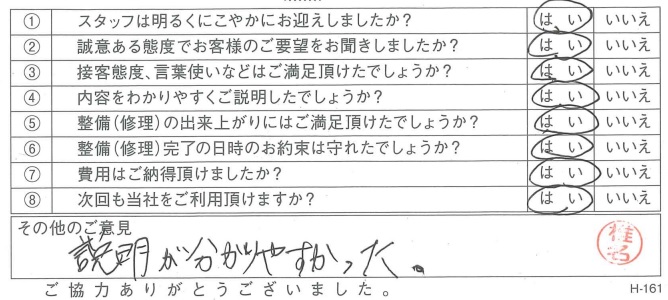 ① スタッフは明るくにこやかにお迎えしましたか? はい いいえ
② 誠意ある態度でお客様のご要望をお聞きしましたか? はい いいえ
③ 接客態度、言葉使いなどはご満足頂けたでしょうか? はい いいえ
④ 内容をわかりやすくご説明したでしょうか? はい いいえ
⑤ 整備(修理)の出来上がりにはご満足頂けたでしょうか? はい いいえ
⑥ 整備(修理)完了の日時のお約束は守れたでしょうか? はい いいえ
⑦ 費用はご納得頂けましたか? はい いいえ
⑧ 次回も当社をご利用頂けますか? はい いいえ
その他のご意見
説明が分かりやすかった。
ご協力ありがとうございました。 H-161